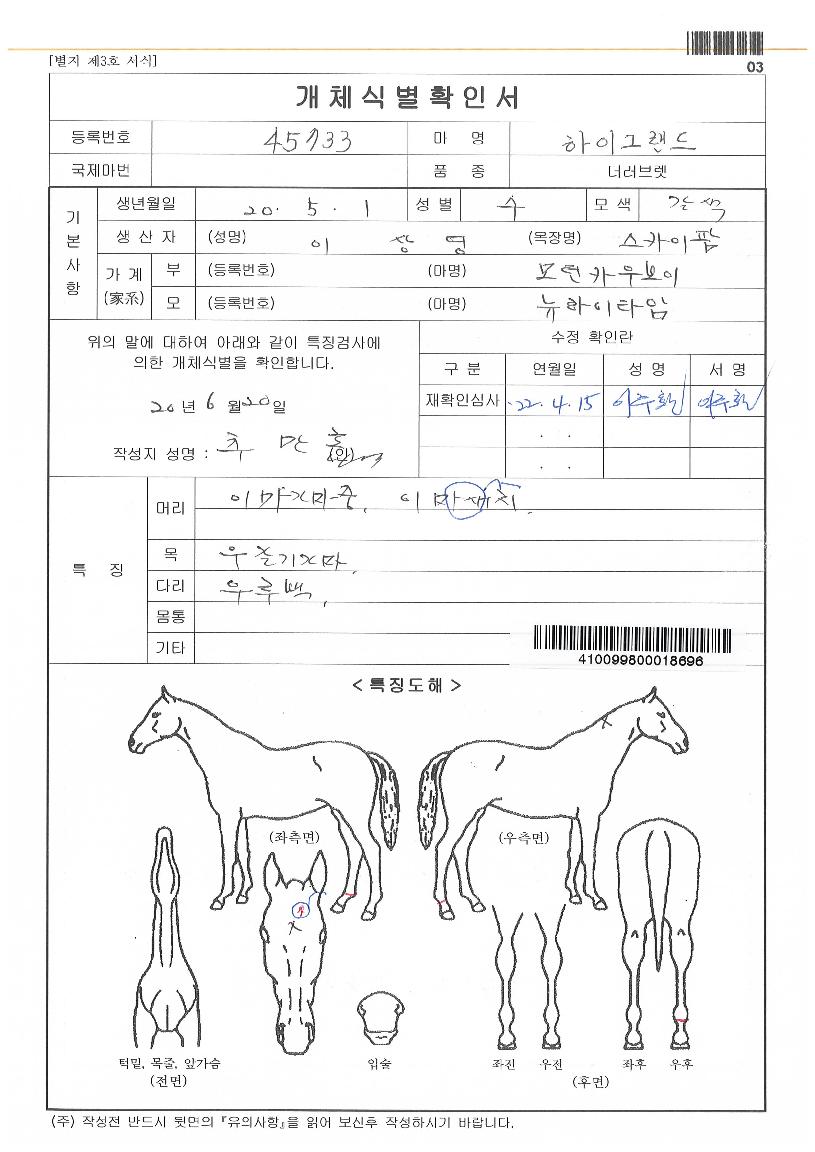 [별지 제3호 서식]
03
개체식별확인서
등록번호 45733 마 명 하이그랜드
국제마번 품 종 더러브렛
기본사항
생년월일 20. 5. 1 성별 수 모색 갈색
생산자 (성명) 이 상 영 (목장명) 스카이팜
가계 (家系) 부 (등록번호) (마명) 모던카우보이
모 (등록번호) (마명) 뉴라이타임
위의 말에 대하여 아래와 같이 특징검사에
의한 개체식별을 확인합니다.
20 년 6 월 20 일
작성지 성명 : 추 만 홍 (인)
수정 확인란
구 분 연월일 성 명 서 명
재확인심사 22. 4. 15
. .
. .
특 징
머리 이마가마중, 이마
목 우줄기가마.
다리 우후백.
몸통
기타
410099800018696
< 특징도해 >
(좌측면) (우측면)
턱밑, 목줄, 앞가슴 입술 좌전 우전 좌후 우후
(전면) (후면)
(주) 작성전 반드시 뒷면의 『유의사항』을 읽어 보신후 작성하시기 바랍니다.